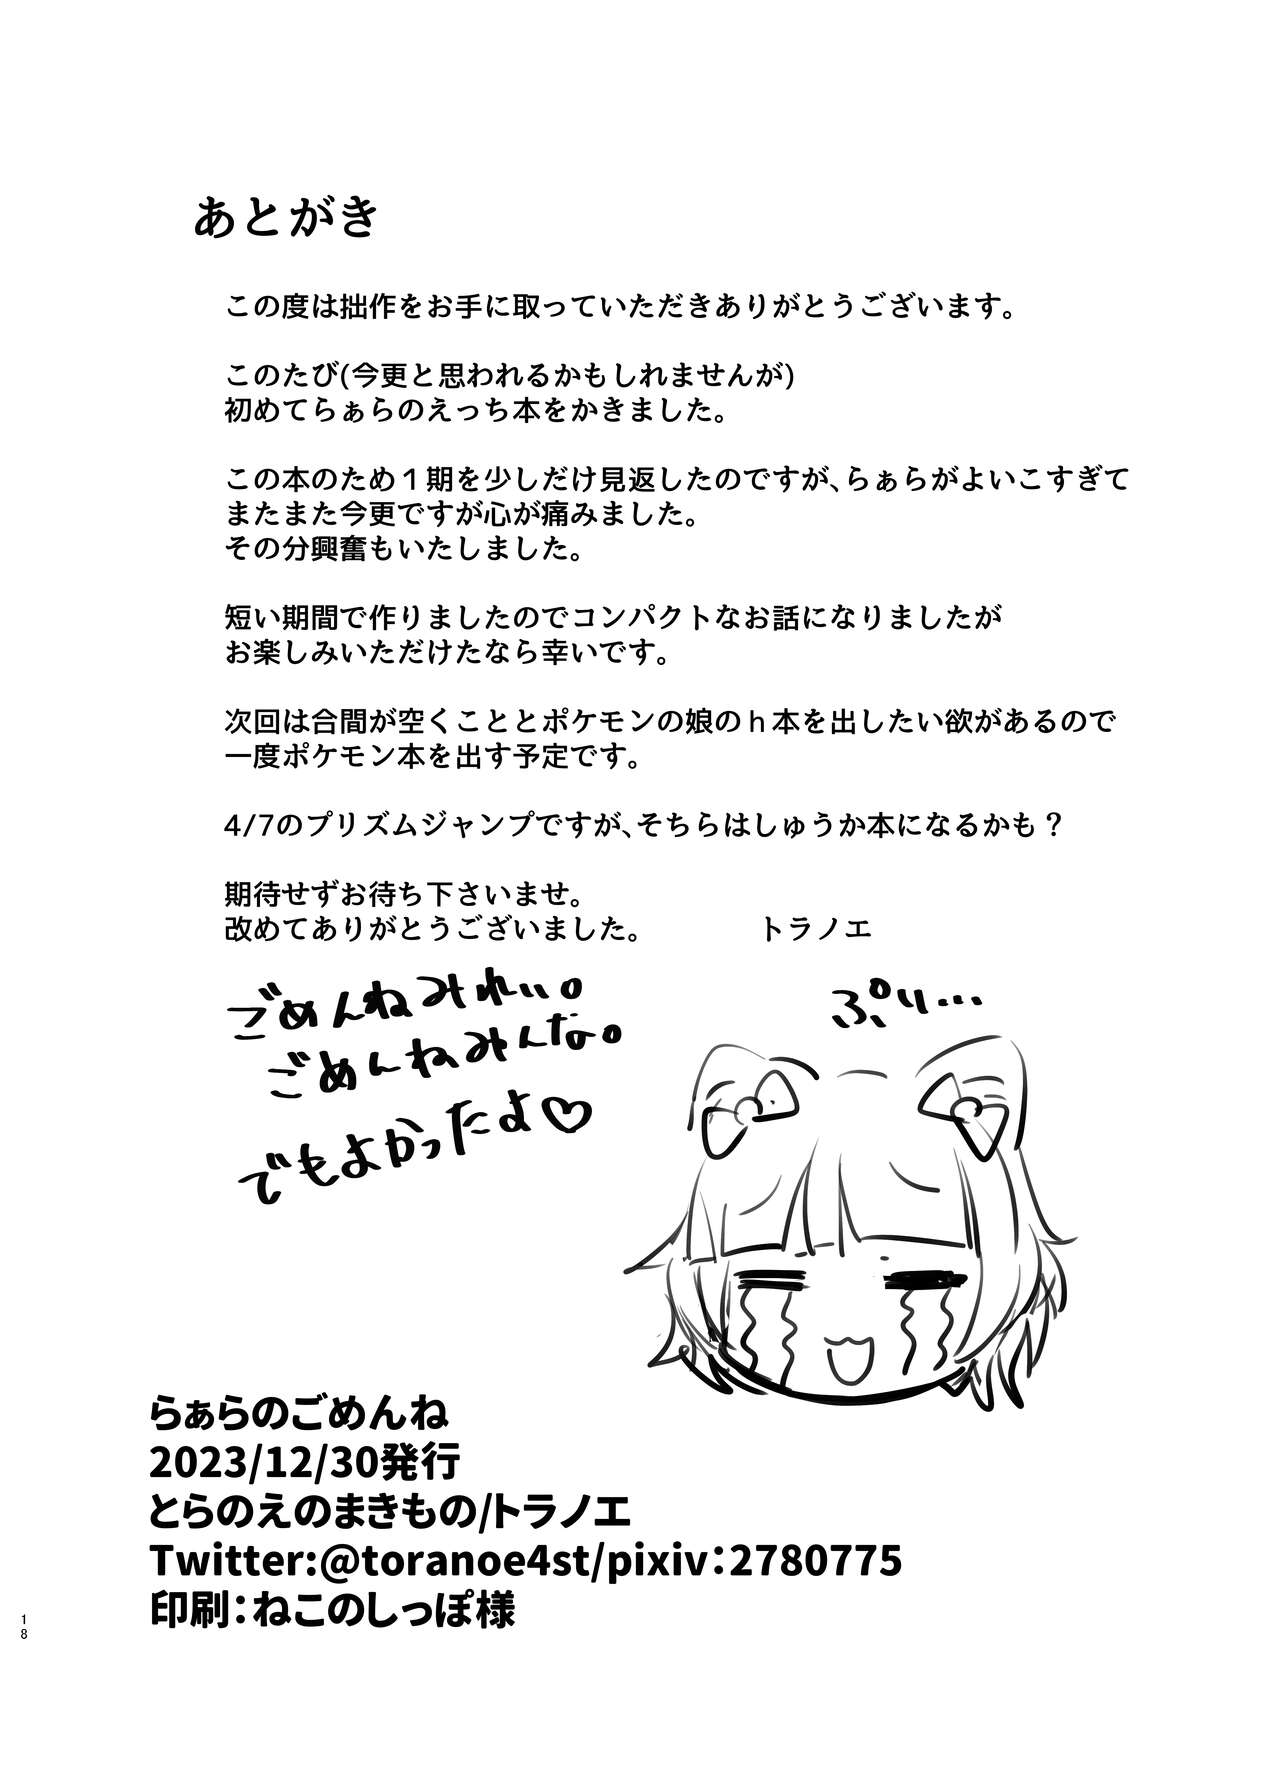 あとがき
この度は拙作をお手に取っていただきありがとうございます。
このたび(今更と思われるかもしれませんが)
初めてらぁらのえっち本をかきました。
この本のため１期を少しだけ見返したのですが、らぁらがよいこすぎて
またまた今更ですが心が痛みました。
その分興奮もいたしました。
短い期間で作りましたのでコンパクトなお話になりましたが
お楽しみいただけたなら幸いです。
次回は合間が空くこととポケモンの娘のｈ本を出したい欲があるので
一度ポケモン本を出す予定です。
4/7のプリズムジャンプですが、そちらはしゅうか本になるかも？
期待せずお待ち下さいませ。
改めてありがとうございました。 トラノエ
ごめんねみれぃ。
ごめんねみんな。
でもよかったよ♡
ぷり…
らぁらのごめんね
2023/12/30発行
とらのえのまきもの/トラノエ
Twitter:@toranoe4st/pixiv：2780775
印刷：ねこのしっぽ様
18